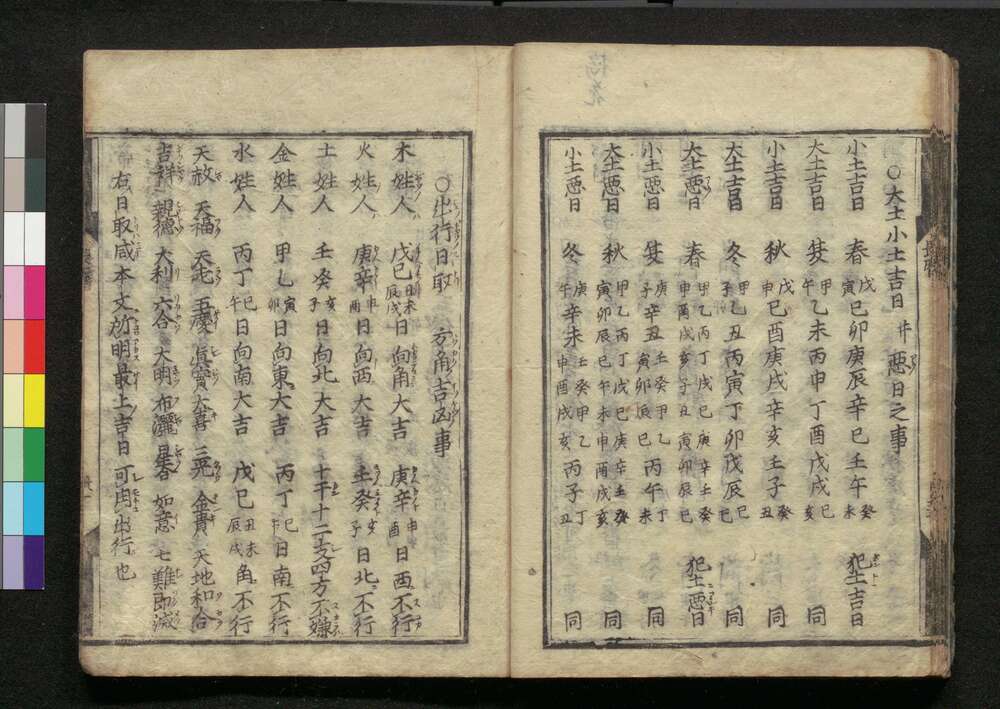 ○大土小土吉日 并 悪日之事
小土吉日 春 戊寅己卯庚辰辛巳壬午癸未 犯土吉日
大土吉日 夏 甲午乙未丙申丁酉戊戌己亥 同
小土吉日 秋 戊申己酉庚戌辛亥壬子癸丑 同
大土吉日 冬 甲子乙丑丙寅丁卯戊辰己巳 同
大土悪日 春 甲申乙酉丙戌丁亥戊子己丑庚寅辛卯壬辰癸巳 犯土悪日
小土悪日 夏 庚子辛丑壬寅癸卯甲辰乙巳丙午丁未 同
大土悪日 秋 甲寅乙卯丙辰丁巳戊午己未庚申辛酉壬戌癸亥 同
小土悪日 冬 庚午辛未壬申癸酉甲戌乙亥丙子丁丑 同
○出行日取 方角吉凶事
木姓人 戊己日向角大吉 庚辛申酉日西不行
火姓人 庚辛申酉日向西大吉 壬癸亥子日北不行
土姓人 壬癸亥子日向北大吉 十干十二支四方不嫌
金姓人 甲乙寅卯日向東大吉 丙丁巳午日南不行
水姓人 丙丁巳午日向南大吉 戊己丑未辰戌角不行
天赦 天福 吾慶 眞實 大喜 三光 金貴 天地和合
吉祥 親徳 大利 六合 大明 布灑 星春 如意 七難即滅
右日取咸本文所明最上吉日可用出行也